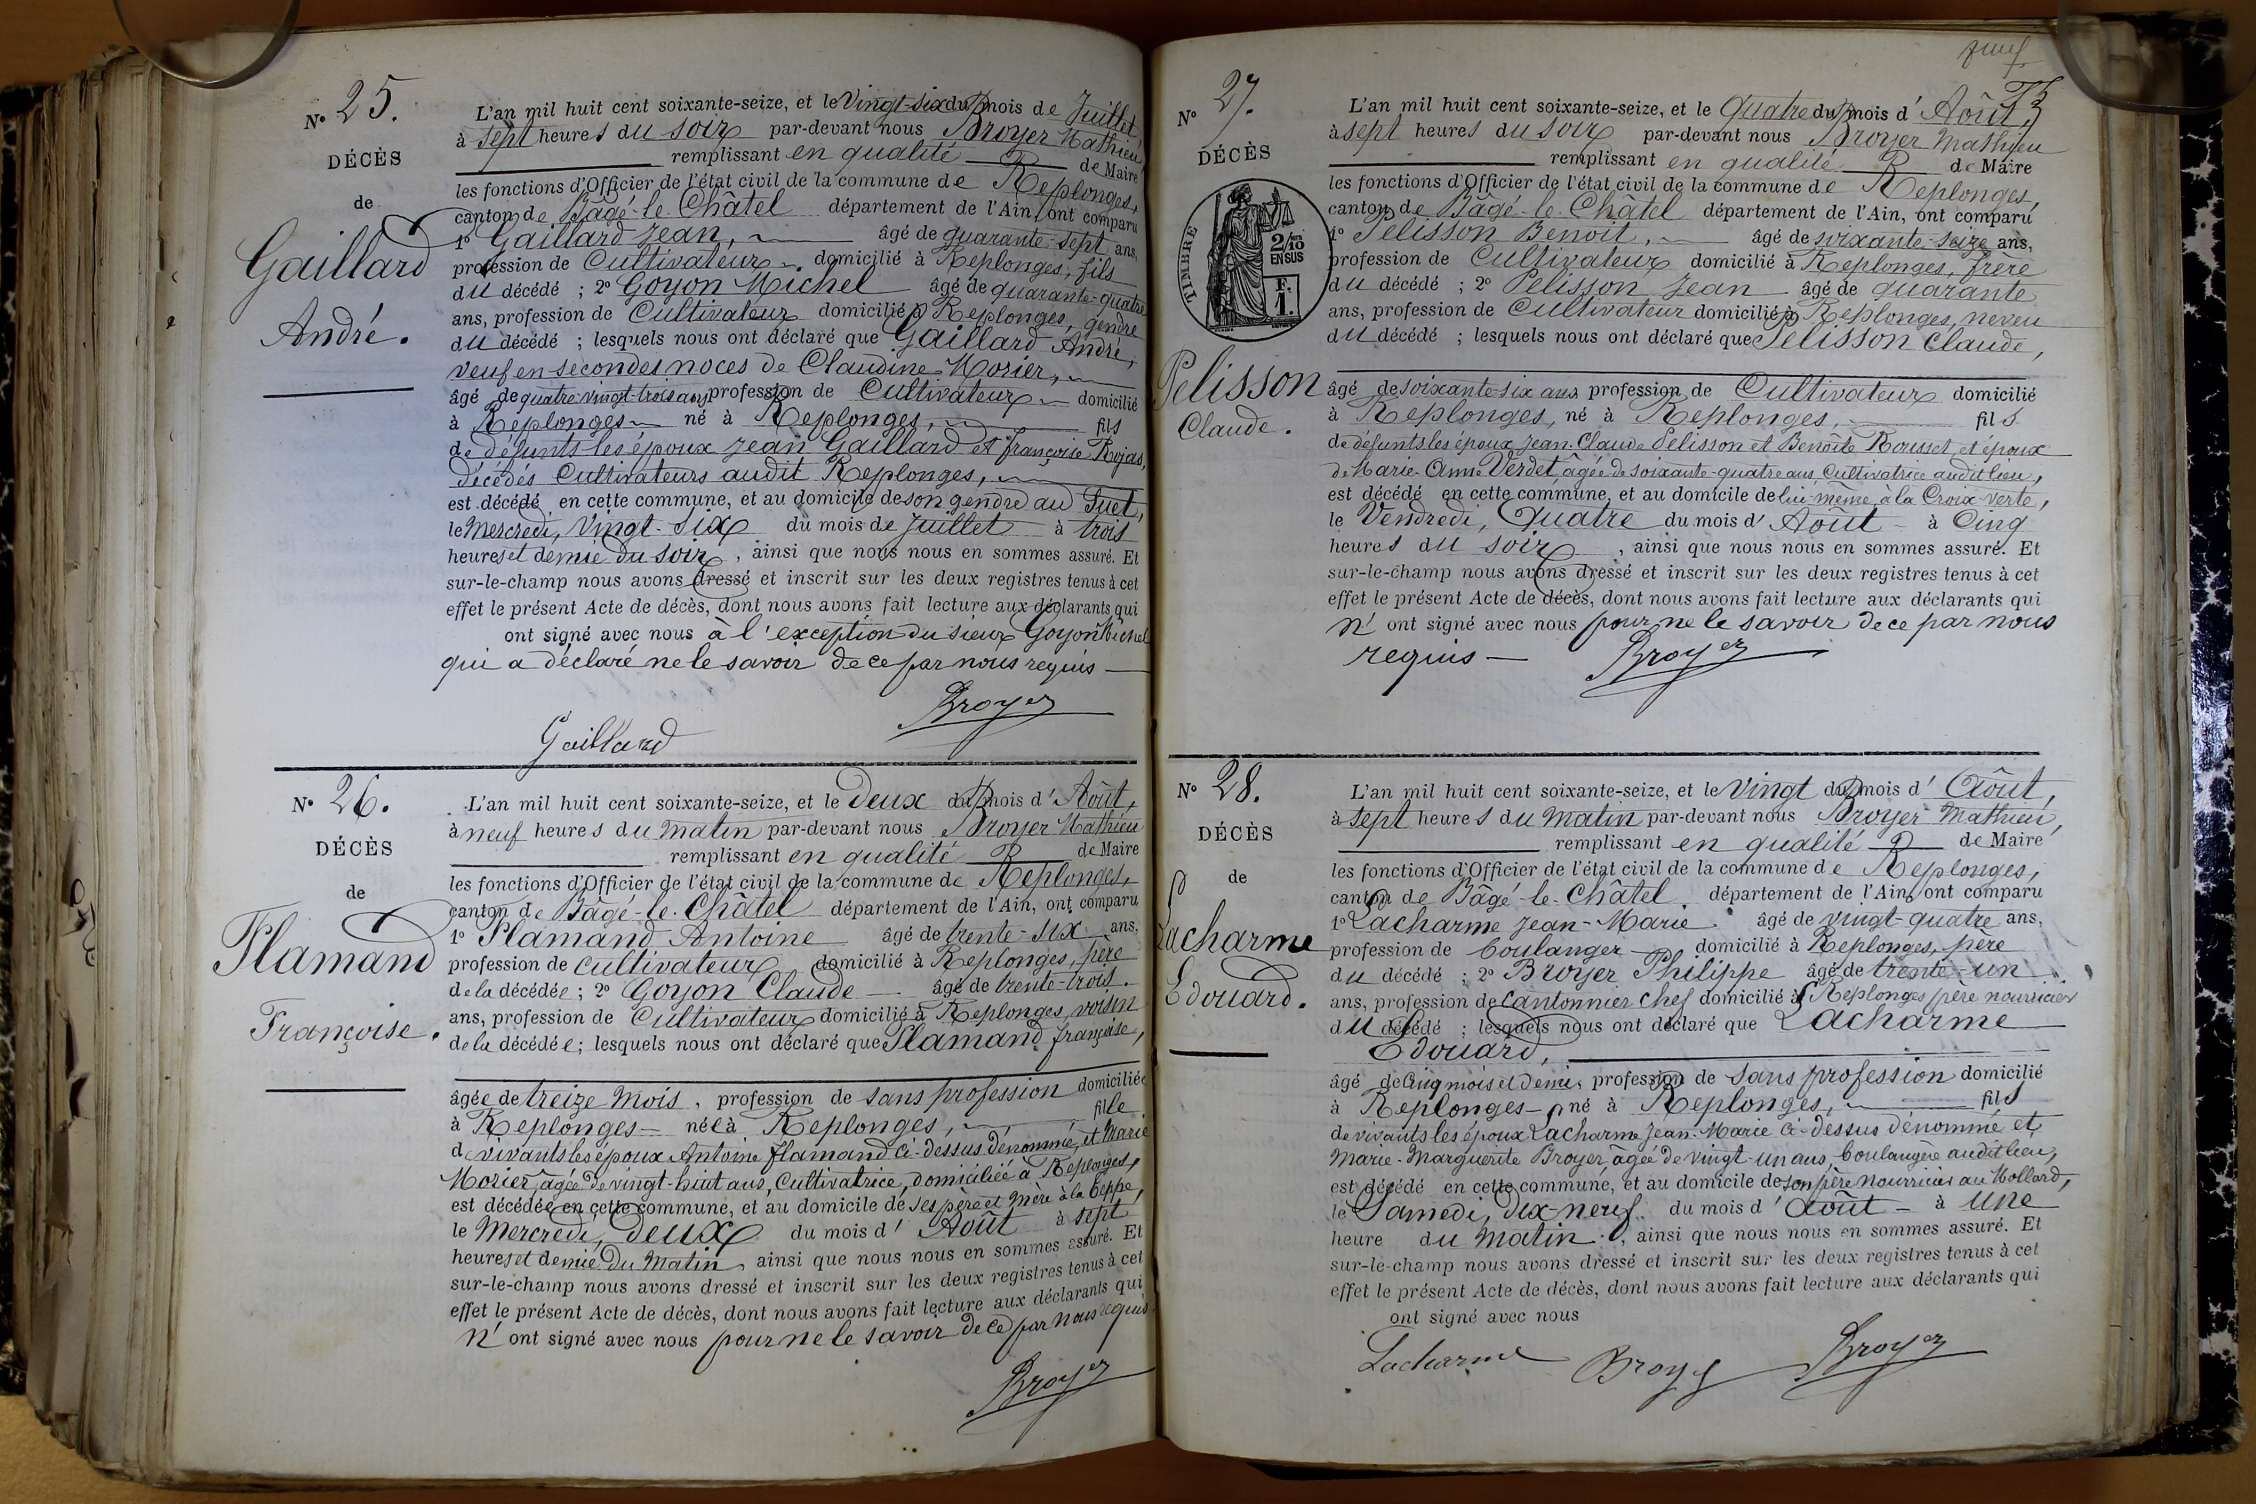 N° 25.
DÉCÈS
de
Gaillard
André.
L'an mil huit cent soixante-seize, et le Vingt-six du mois de Juillet,
à sept heures du soir par-devant nous Broyer Mathieu
remplissant en qualité de Maire
les fonctions d'Officier de l'état civil de la commune de Replonges,
canton de Bâgé-le-Châtel département de l'Ain, ont comparu
1° Gaillard Jean, âgé de quarante-sept ans,
profession de Cultivateur domicilié à Replonges, fils
du décédé ; 2° Goyon Michel âgé de quarante-quatre
ans, profession de Cultivateur domicilié à Replonges, gendre
du décédé ; lesquels nous ont déclaré que Gaillard André,
veuf en secondes noces de Claudine Morier,
âgé de quatre-vingt-trois ans profession de Cultivateur domicilié
à Replonges né à Replonges, fils
de défunts les époux Jean Gaillard et françoise Rojas,
décédés Cultivateurs audit Replonges,
est décédé en cette commune, et au domicile de son gendre au Guet,
le Mercredi, Vingt-six du mois de Juillet à trois
heures et demie du soir, ainsi que nous nous en sommes assuré. Et
sur-le-champ nous avons dressé et inscrit sur les deux registres tenus à cet
effet le présent Acte de décès, dont nous avons fait lecture aux déclarants qui
ont signé avec nous à l'exception du sieur Goyon Michel
qui a déclaré ne le savoir de ce par nous requis
Broyer
Gaillard
N° 26.
DÉCÈS
de
Flamand
Françoise.
L'an mil huit cent soixante-seize, et le deux du mois d'Août,
à neuf heures du matin par-devant nous Broyer Mathieu
remplissant en qualité de Maire
les fonctions d'Officier de l'état civil de la commune de Replonges,
canton de Bâgé-le-Châtel département de l'Ain, ont comparu
1° Flamand Antoine âgé de trente-six ans,
profession de cultivateur domicilié à Replonges, père
de la décédée ; 2° Goyon Claude âgé de trente-trois
ans, profession de Cultivateur domicilié à Replonges, voisin
de la décédée ; lesquels nous ont déclaré que Flamand françoise,
âgée de treize mois, profession de sans profession domiciliée
à Replonges née à Replonges, fille
de vivants les époux Antoine Flamand ci-dessus dénommé, et Marie
Morier, âgée de vingt-huit ans, Cultivatrice, domiciliée à Replonges,
est décédée en cette commune, et au domicile de ses père et mère à la Ceppe,
le Mercredi, deux du mois d'Août à sept
heures et demie du Matin, ainsi que nous nous en sommes assuré. Et
sur-le-champ nous avons dressé et inscrit sur les deux registres tenus à cet
effet le présent Acte de décès, dont nous avons fait lecture aux déclarants qui
n'ont signé avec nous pour ne le savoir de ce par nous requis
Broyer
N° 27.
DÉCÈS
TIMBRE
2/10
EN SUS
F.
1.
Pelisson
Claude.
L'an mil huit cent soixante-seize, et le Quatre du mois d'Août,
à sept heures du soir par-devant nous Broyer Mathieu
remplissant en qualité de Maire
les fonctions d'Officier de l'état civil de la commune de Replonges,
canton de Bâgé-le-Châtel département de l'Ain, ont comparu
1° Pelisson Benoît, âgé de soixante-seize ans,
profession de Cultivateur domicilié à Replonges, frère
du décédé ; 2° Pelisson Jean âgé de quarante
ans, profession de Cultivateur domicilié à Replonges, neveu
du décédé ; lesquels nous ont déclaré que Pelisson Claude,
âgé de soixante-six ans profession de Cultivateur domicilié
à Replonges, né à Replonges, fils
de défunts les époux Jean-Claude Pelisson et Benoîte Rousset, et époux
de Marie-Anne Verdet, âgée de soixante-quatre ans, Cultivatrice audit lieu,
est décédé en cette commune, et au domicile de lui-même, à la Croix-verte,
le Vendredi, Quatre du mois d'Août à Cinq
heures du soir, ainsi que nous nous en sommes assuré. Et
sur-le-champ nous avons dressé et inscrit sur les deux registres tenus à cet
effet le présent Acte de décès, dont nous avons fait lecture aux déclarants qui
n'ont signé avec nous pour ne le savoir de ce par nous
requis
Broyer
N° 28.
DÉCÈS
de
Lacharme
Edouard.
L'an mil huit cent soixante-seize, et le Vingt du mois d'Août,
à sept heures du Matin par-devant nous Broyer Mathieu,
remplissant en qualité de Maire
les fonctions d'Officier de l'état civil de la commune de Replonges,
canton de Bâgé-le-Châtel département de l'Ain, ont comparu
1° Lacharme Jean-Marie âgé de vingt-quatre ans,
profession de boulanger domicilié à Replonges, père
du décédé ; 2° Broyer Philippe âgé de trente-un
ans, profession de Cantonnier chef domicilié à Replonges père nourricier
du décédé ; lesquels nous ont déclaré que Lacharme
Edouard,
âgé de Cinq mois et demi, profession de sans profession domicilié
à Replonges né à Replonges, fils
de vivants les époux Lacharme Jean-Marie Ci-dessus dénommé et
Marie-Marguerite Broyer, âgée de vingt-un ans, boulangère audit lieu,
est décédé en cette commune, et au domicile de son père nourricier au Mollard,
le Samedi, dix-neuf du mois d'Août à Une
heure du Matin, ainsi que nous nous en sommes assuré. Et
sur-le-champ nous avons dressé et inscrit sur les deux registres tenus à cet
effet le présent Acte de décès, dont nous avons fait lecture aux déclarants qui
ont signé avec nous
Lacharme Broyer Broyer